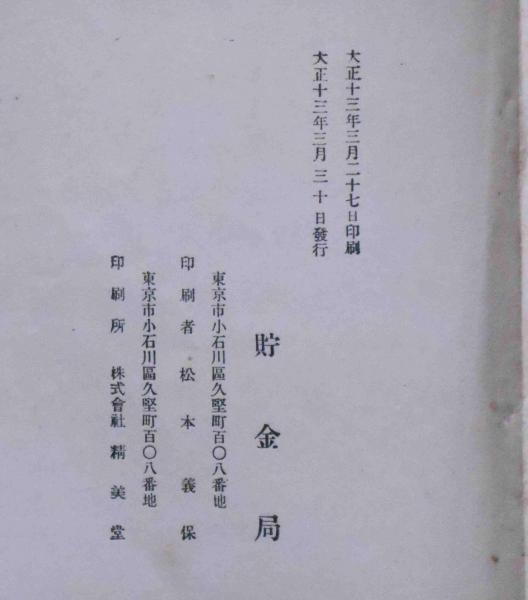 大正十三年三月二十七日印刷
大正十三年三月三十日發行
貯金局
東京市小石川區久堅町百〇八番地
印刷者 松本義保
東京市小石川區久堅町百〇八番地
印刷所 株式會社精美堂